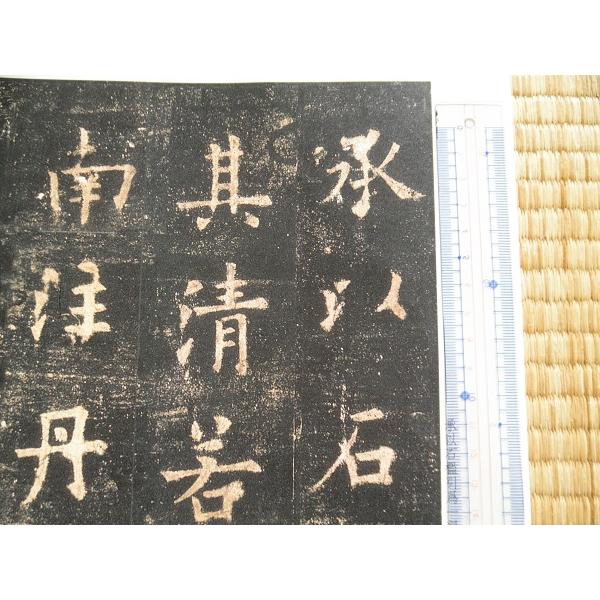 承以石
其清若
南注丹